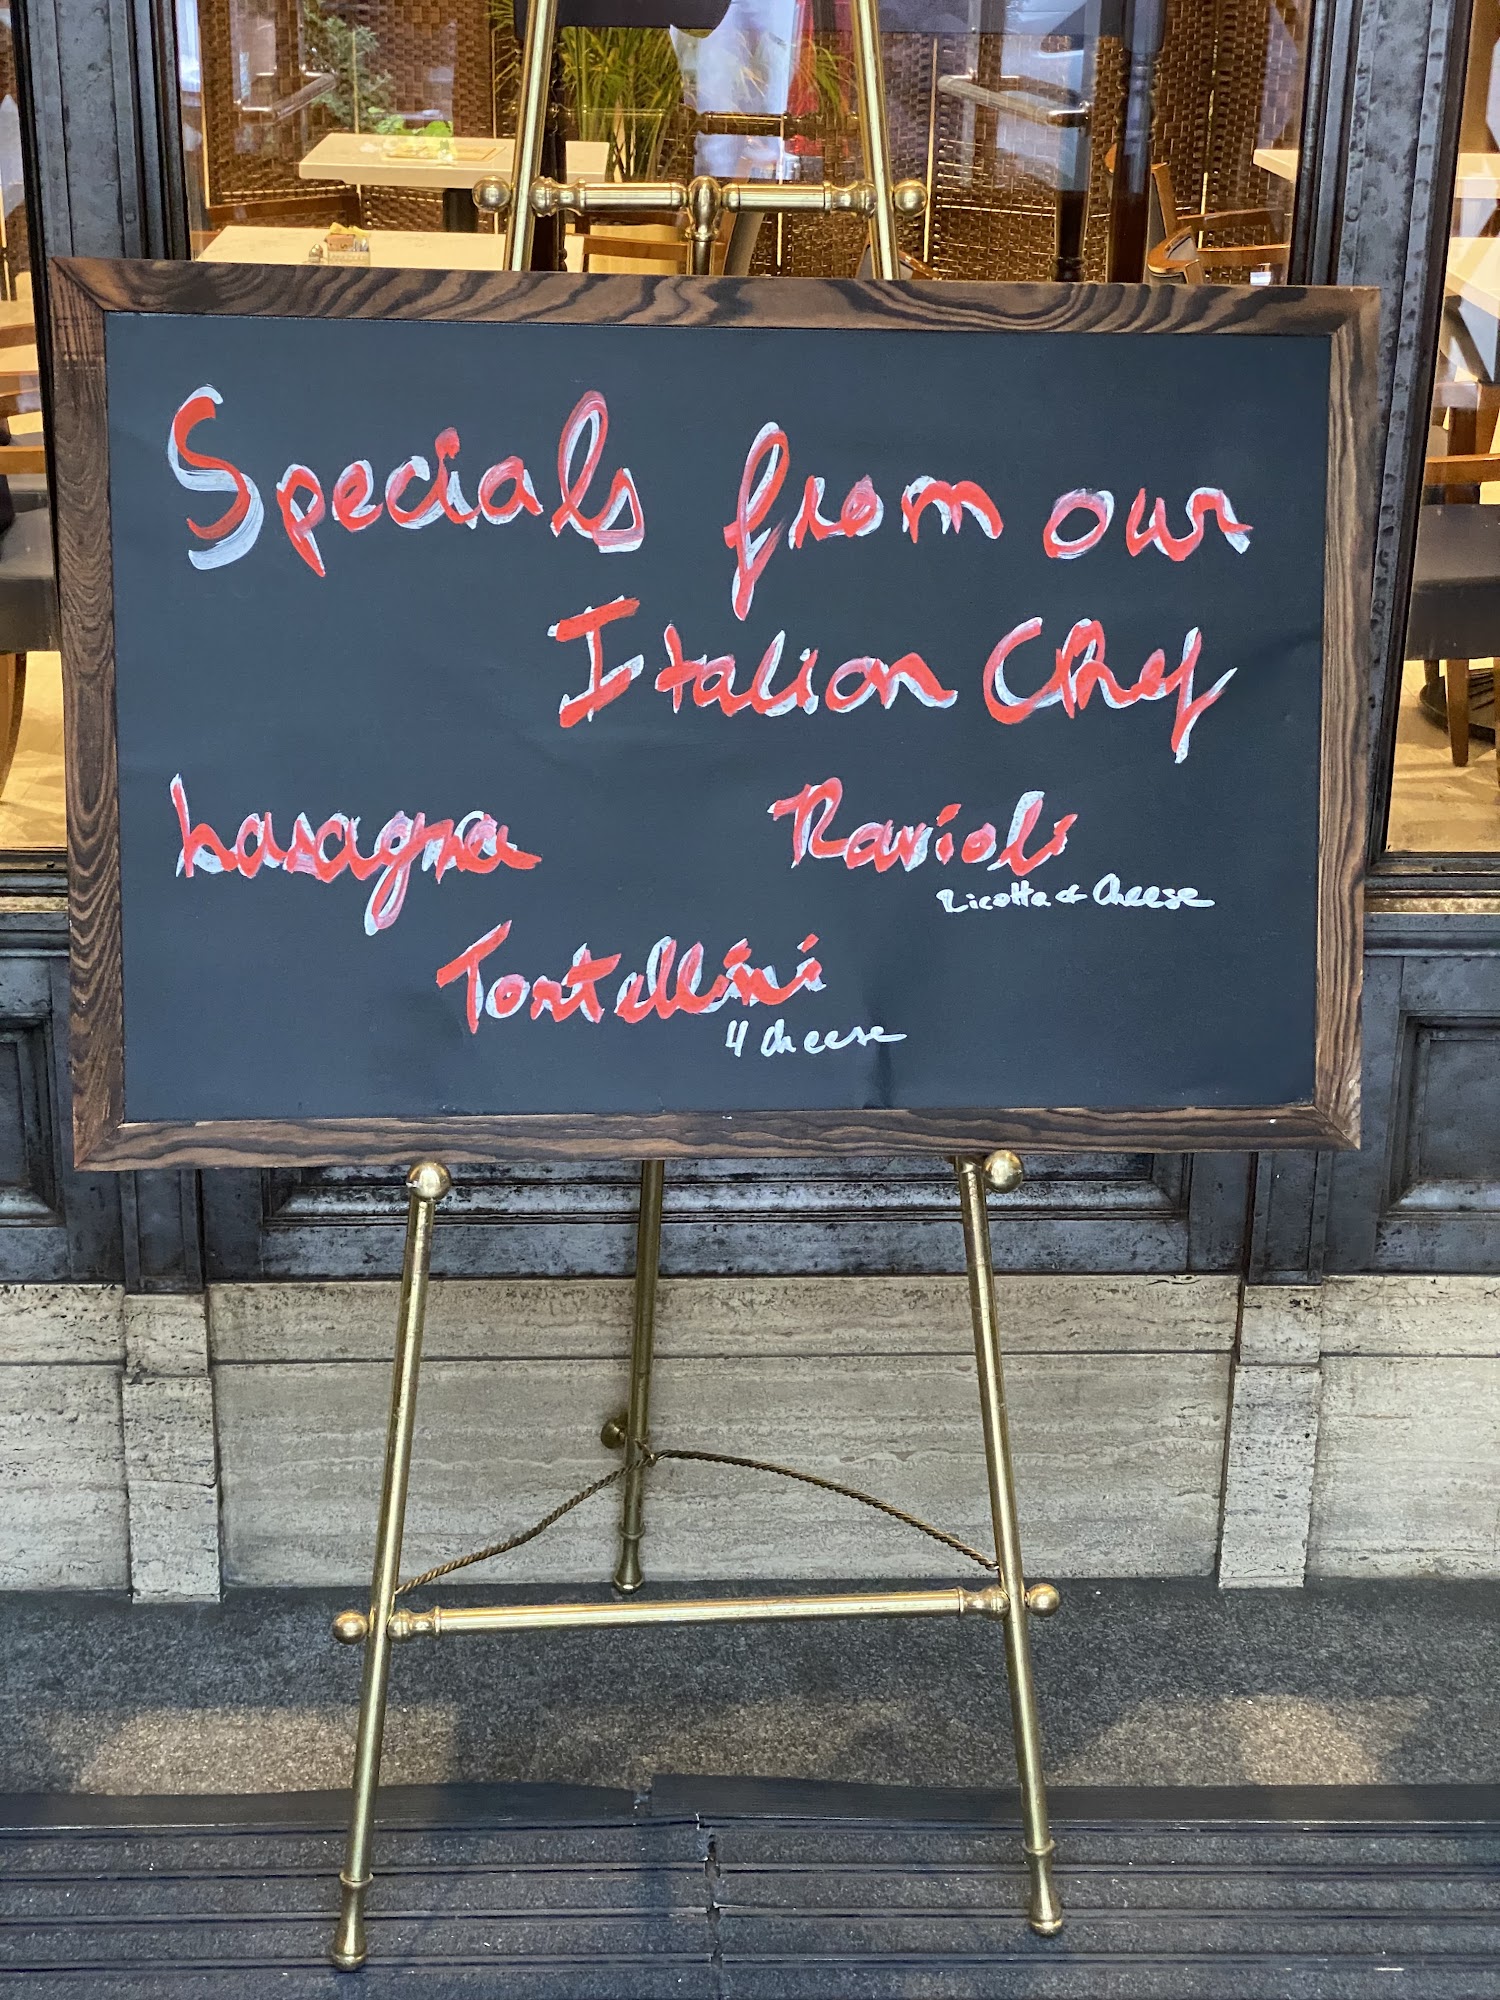 Specials from our
Italian Chef
Lasagna Ravioli
Ricotta & Cheese
Tortellini
4 Cheese